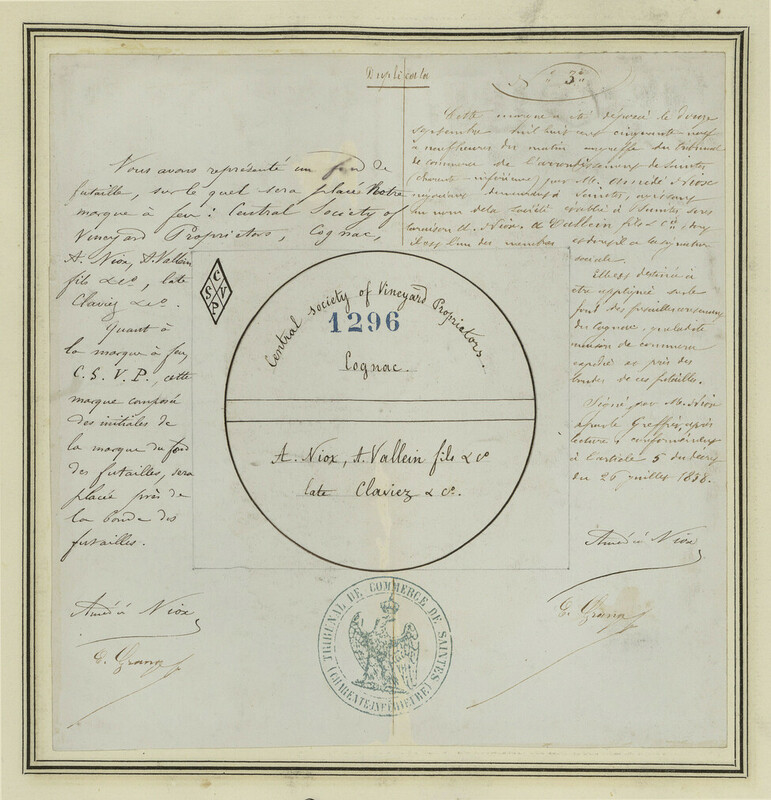 Duplicata
N° 3bis
Nous avons représenté un fond de
futaille, sur le quel sera placée Notre
marque à feu : Central Society of
Vineyard Proprietors, Cognac,
A. Niox, A. Vallein
fils & Cº, late
Claviez & Cº.
Quant à
la marque à feu
C. S. V. P., cette
marque composée
des initiales de
la marque du fond
des futailles, sera
placée près de
la bonde des
futailles.
Amédée Niox
Cette marque a été déposée le douze
septembre mil huit cent cinquante neuf
à neuf heures du matin au greffe du tribunal
de commerce de l'arrondissement de Saintes
(Charente-inférieure) par M. Amédée Niox
négociant demeurant à Saintes, agissant
au nom de la société établie à Saintes, sous
la raison A. Niox, A. Vallein fils & Cº, dont
il est l'un des membres
sociale.
Elle est destinée à
être appliquée sur le
fond des futailles
de cognac,
commerce
et près des
bondes de ces futailles.
Signé par M. Niox
après
lecture, conformément
à l'article 5 du décret
du 26 juillet 1858.
Amédée Niox
C S V P
Central Society of Vineyard Proprietors.
1296
Cognac.
A. Niox, A. Vallein fils & Cº
late Claviez & Cº.
TRIBUNAL DE COMMERCE DE SAINTES
(CHARENTE INFÉRIEURE)